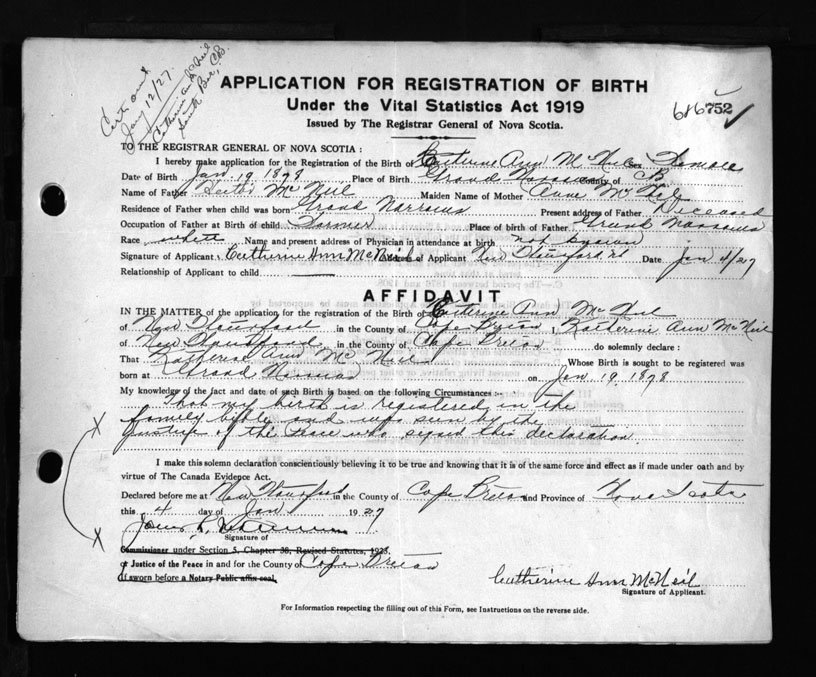 Cert out
Jany 12/27.
Catherine Ann McNeil
South Bar, C.B.
APPLICATION FOR REGISTRATION OF BIRTH
Under the Vital Statistics Act 1919
Issued by The Registrar General of Nova Scotia.
686752
TO THE REGISTRAR GENERAL OF NOVA SCOTIA :
I hereby make application for the Registration of the Birth of Catherine Ann McNeil Sex Female
Date of Birth Jan 19 1878 Place of Birth Grand Narrows County of CB
Name of Father Hector McNeil Maiden Name of Mother Anne McNeil
Residence of Father when child was born Grand Narrows Present address of Father Deceased
Occupation of Father at Birth of child Farmer Place of birth of Father Grand Narrows
Race white Name and present address of Physician in attendance at birth not known
Signature of Applicant Catherine Ann McNeil Address of Applicant New Waterford Date Jan 4/27
Relationship of Applicant to child
AFFIDAVIT
IN THE MATTER of the application for the registration of the Birth of Catherine Ann McNeil
of New Waterford in the County of Cape Breton I, Katherine Ann McNeil
of New Waterford in the County of Cape Breton do solemnly declare :
That Katherine Ann McNeil Whose Birth is sought to be registered was
born at Grand Narrows on Jan 19 1878
My knowledge of the fact and date of such Birth is based on the following Circumstances :-
That my birth is registered in the
family bible and was seen by the
Justice of the Peace who signed this declaration.
I make this solemn declaration conscientiously believing it to be true and knowing that it is of the same force and effect as if made under oath and by
virtue of The Canada Evidence Act.
Declared before me at New Waterford in the County of Cape Breton and Province of Nova Scotia
this 4 day of Jan 1927
Signature of
Commissioner under Section 5, Chapter 38, Revised Statutes, 1923.
or Justice of the Peace in and for the County of Cape Breton
If sworn before a Notary Public affix seal.
Catherine Ann McNeil
Signature of Applicant.
For Information respecting the filling out of this Form, see Instructions on the reverse side.